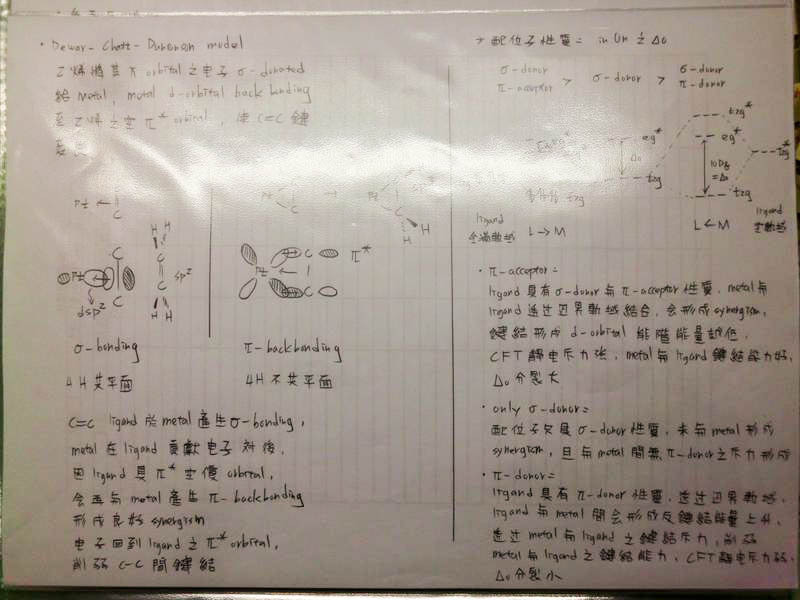 • Dewar-Chatt-Duncanson model
乙烯將其 π orbital 之电子 σ-donated
給 metal, metal d-orbital back bonding
至乙烯之空 π* orbital, 使 C=C 鍵
Pt ← C
C
H H
Pt C C sp²
dsp²
H H
σ-bonding
4H 共平面
Pt C C → Pt C C
H H
Pt C C π*
π-backbonding
4H 不共平面
C=C ligand 於 metal 產生 σ-bonding,
metal 在 ligand 貢獻电子对後,
因 ligand 具 π* 空價 orbital,
会再与 metal 產生 π-backbonding
形成良好 synergism
电子回到 ligand 之 π* orbital,
削弱 C-C 間鍵結
→ 配位子性質= in Oh 之 Δo
σ-donor π-acceptor > σ-donor > σ-donor π-donor
eg* Δo t2g
t2g* eg* 10Dq =Δo t2g t2g*
ligand 全滿軌域 L→M
L←M ligand 空軌域
• π-acceptor=
ligand 具有 σ-donor 与 π-acceptor 性質, metal 与
ligand 透过边界軌域結合, 会形成 synergism,
鍵結形成 d-orbital 能階能量越低,
CFT 靜电斥力強, metal 与 ligand 鍵結能力好,
Δo 分裂大
• only σ-donor=
配位子只是 σ-donor 性質, 未与 metal 形成
synergism, 且与 metal 間無 π-donor 之斥力形成
• π-donor=
ligand 具有 π-donor 性質, 透过边界軌域,
ligand 与 metal 間会形成反鍵結能量上升,
透过 metal 与 ligand 之鍵結斥力, 削弱
metal 与 ligand 之鍵結能力, CFT 靜电斥力弱,
Δo 分裂小